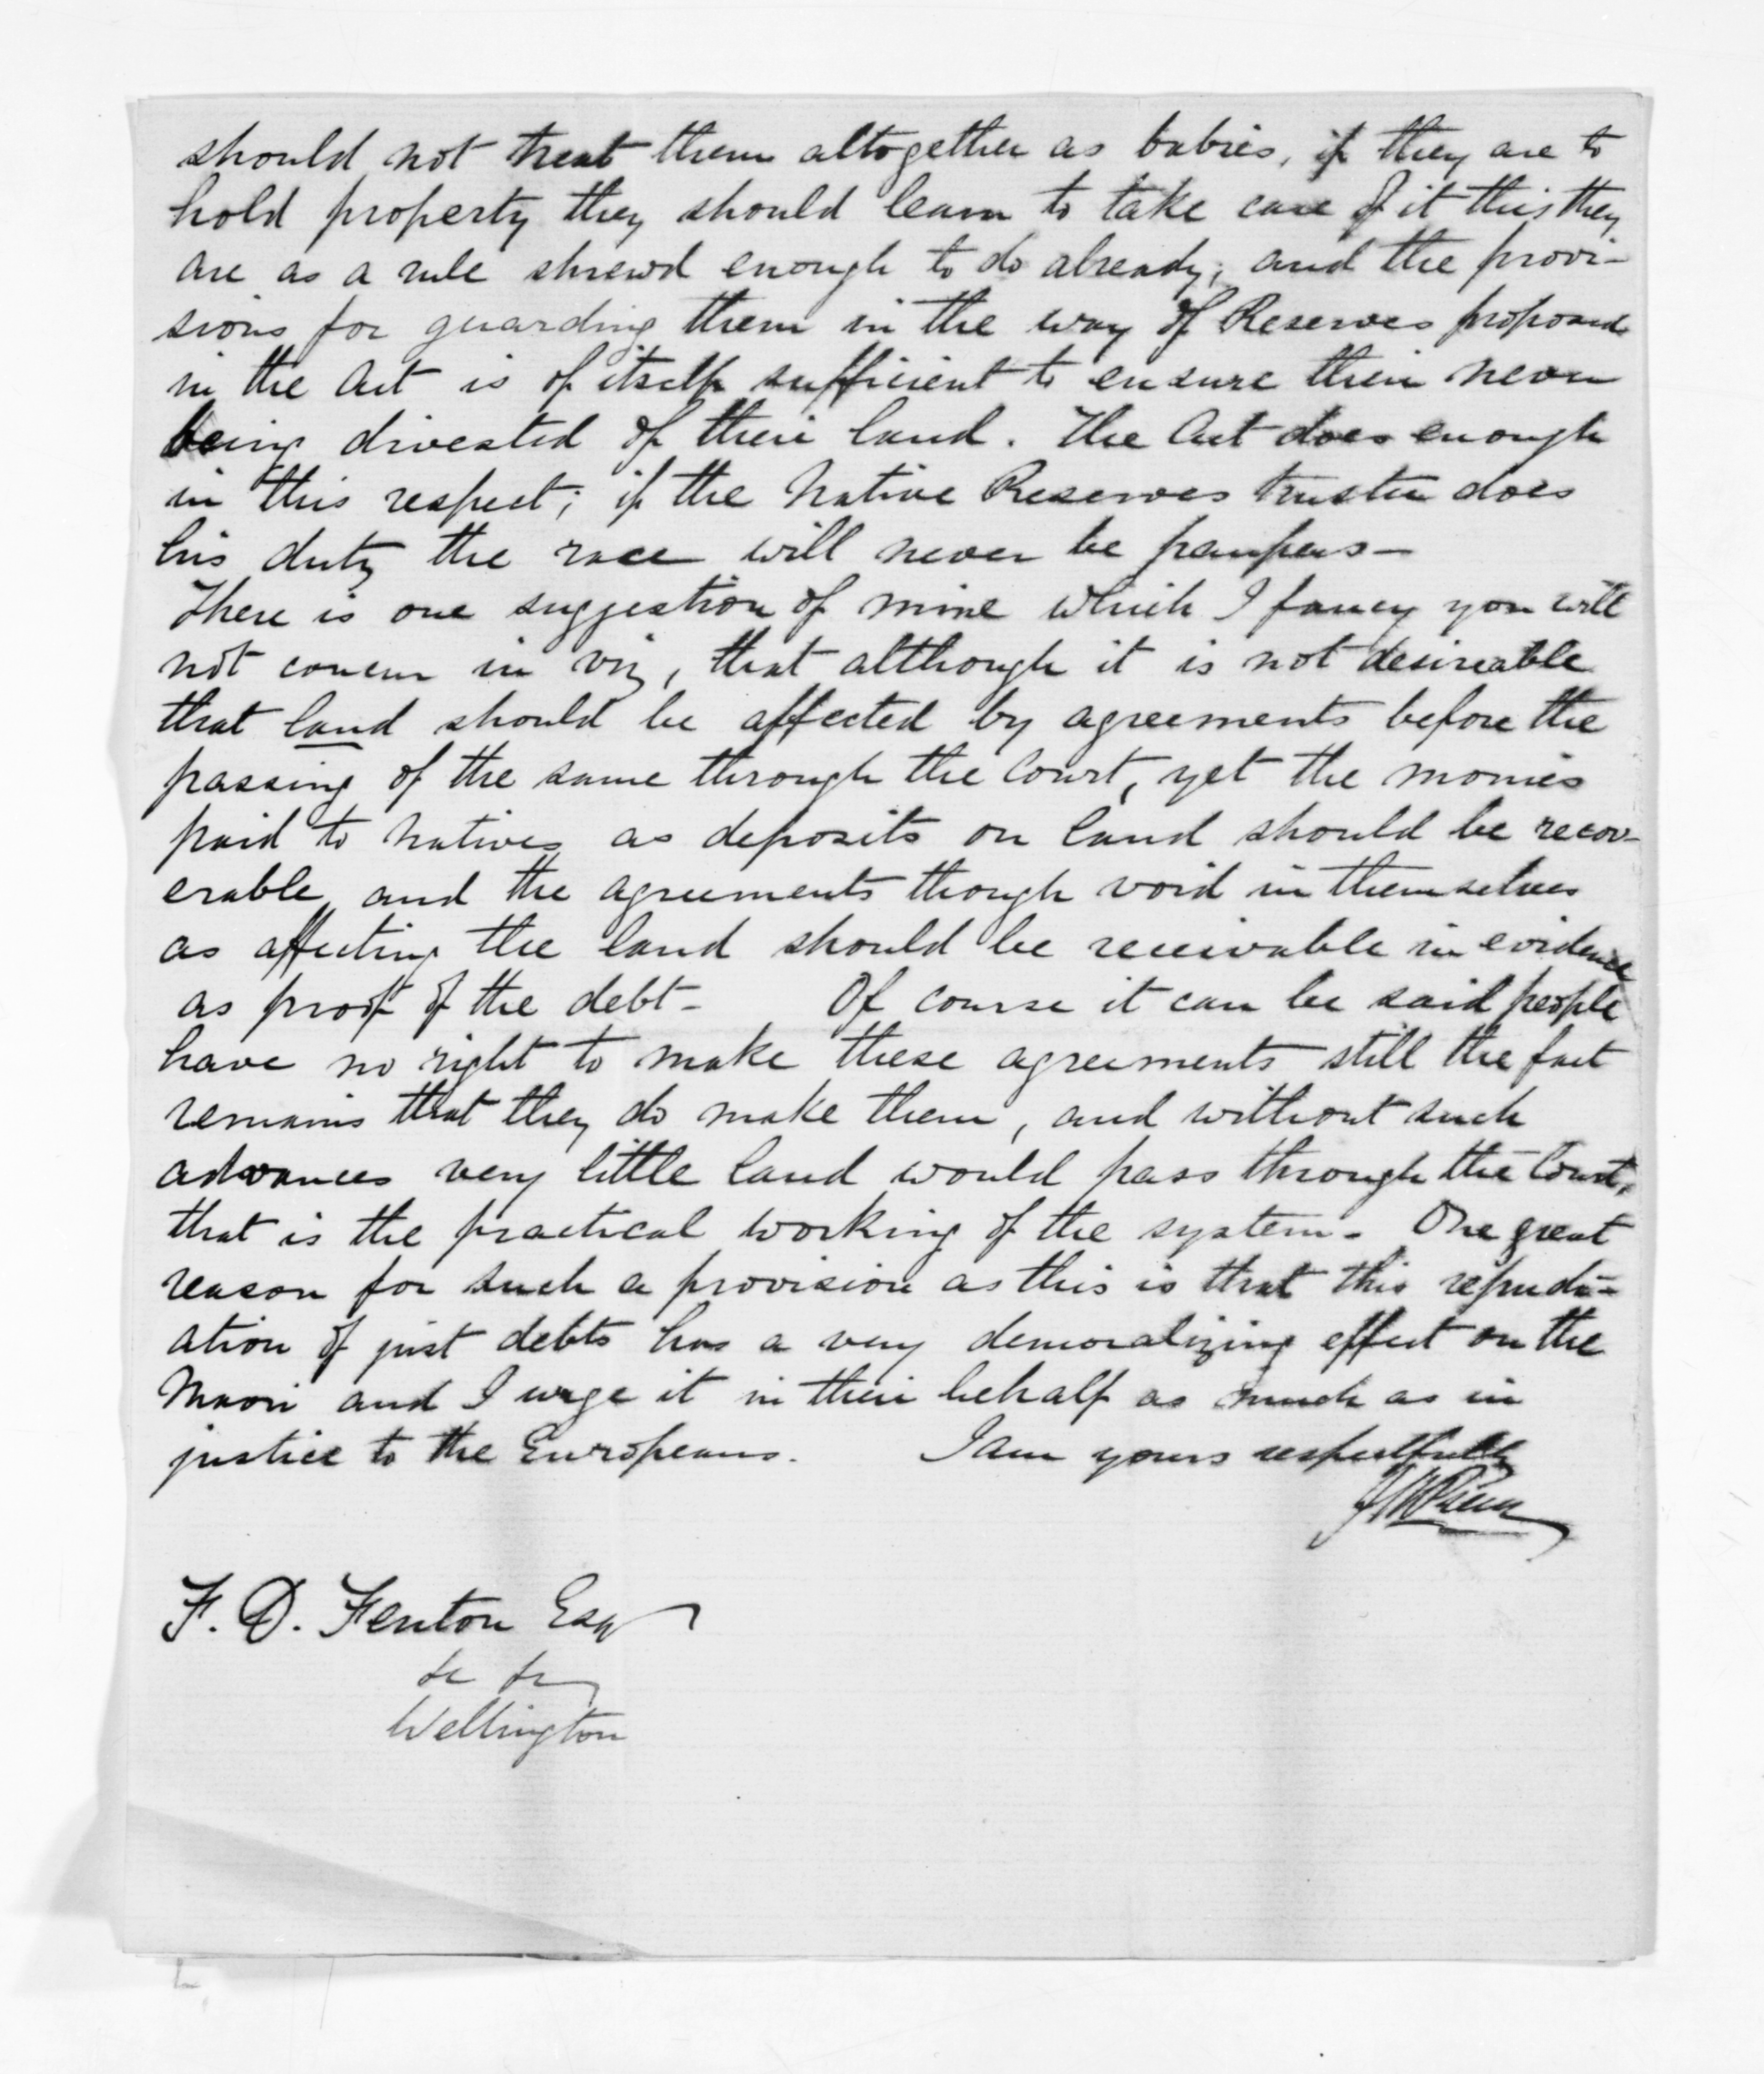 should not treat them altogether as babies, if they are to
hold property they should learn to take care of it this they
are as a rule shrewd enough to do already; and the provi-
sions for guarding them in the way of Reserves proposed
in the Act is of itself sufficient to ensure their never
being divested of their land. The Act does enough
in this respect; if the Native Reserves trustee does
his duty the race will never be paupers-
There is one suggestion of mine which I fancy you will
not concur in viz, that although it is not desireable
that land should be affected by agreements before the
passing of the same through the Court, yet the monies
paid to natives as deposits on land should be recov-
erable and the agreements though void in themselves
as affecting the land should be receivable in evidence
as proof of the debt- Of course it can be said people
have no right to make these agreements still the fact
remains that they do make them, and without such
advances very little land would pass through the Court,
that is the practical working of the system- One great
reason for such a provision as this is that this repudi-
ation of just debts has a very demoralizing effect on the
Maori and I urge it in their behalf as much as in
justice to the Europeans. I am yours respectfully
F. D. Fenton Esq
Wellington